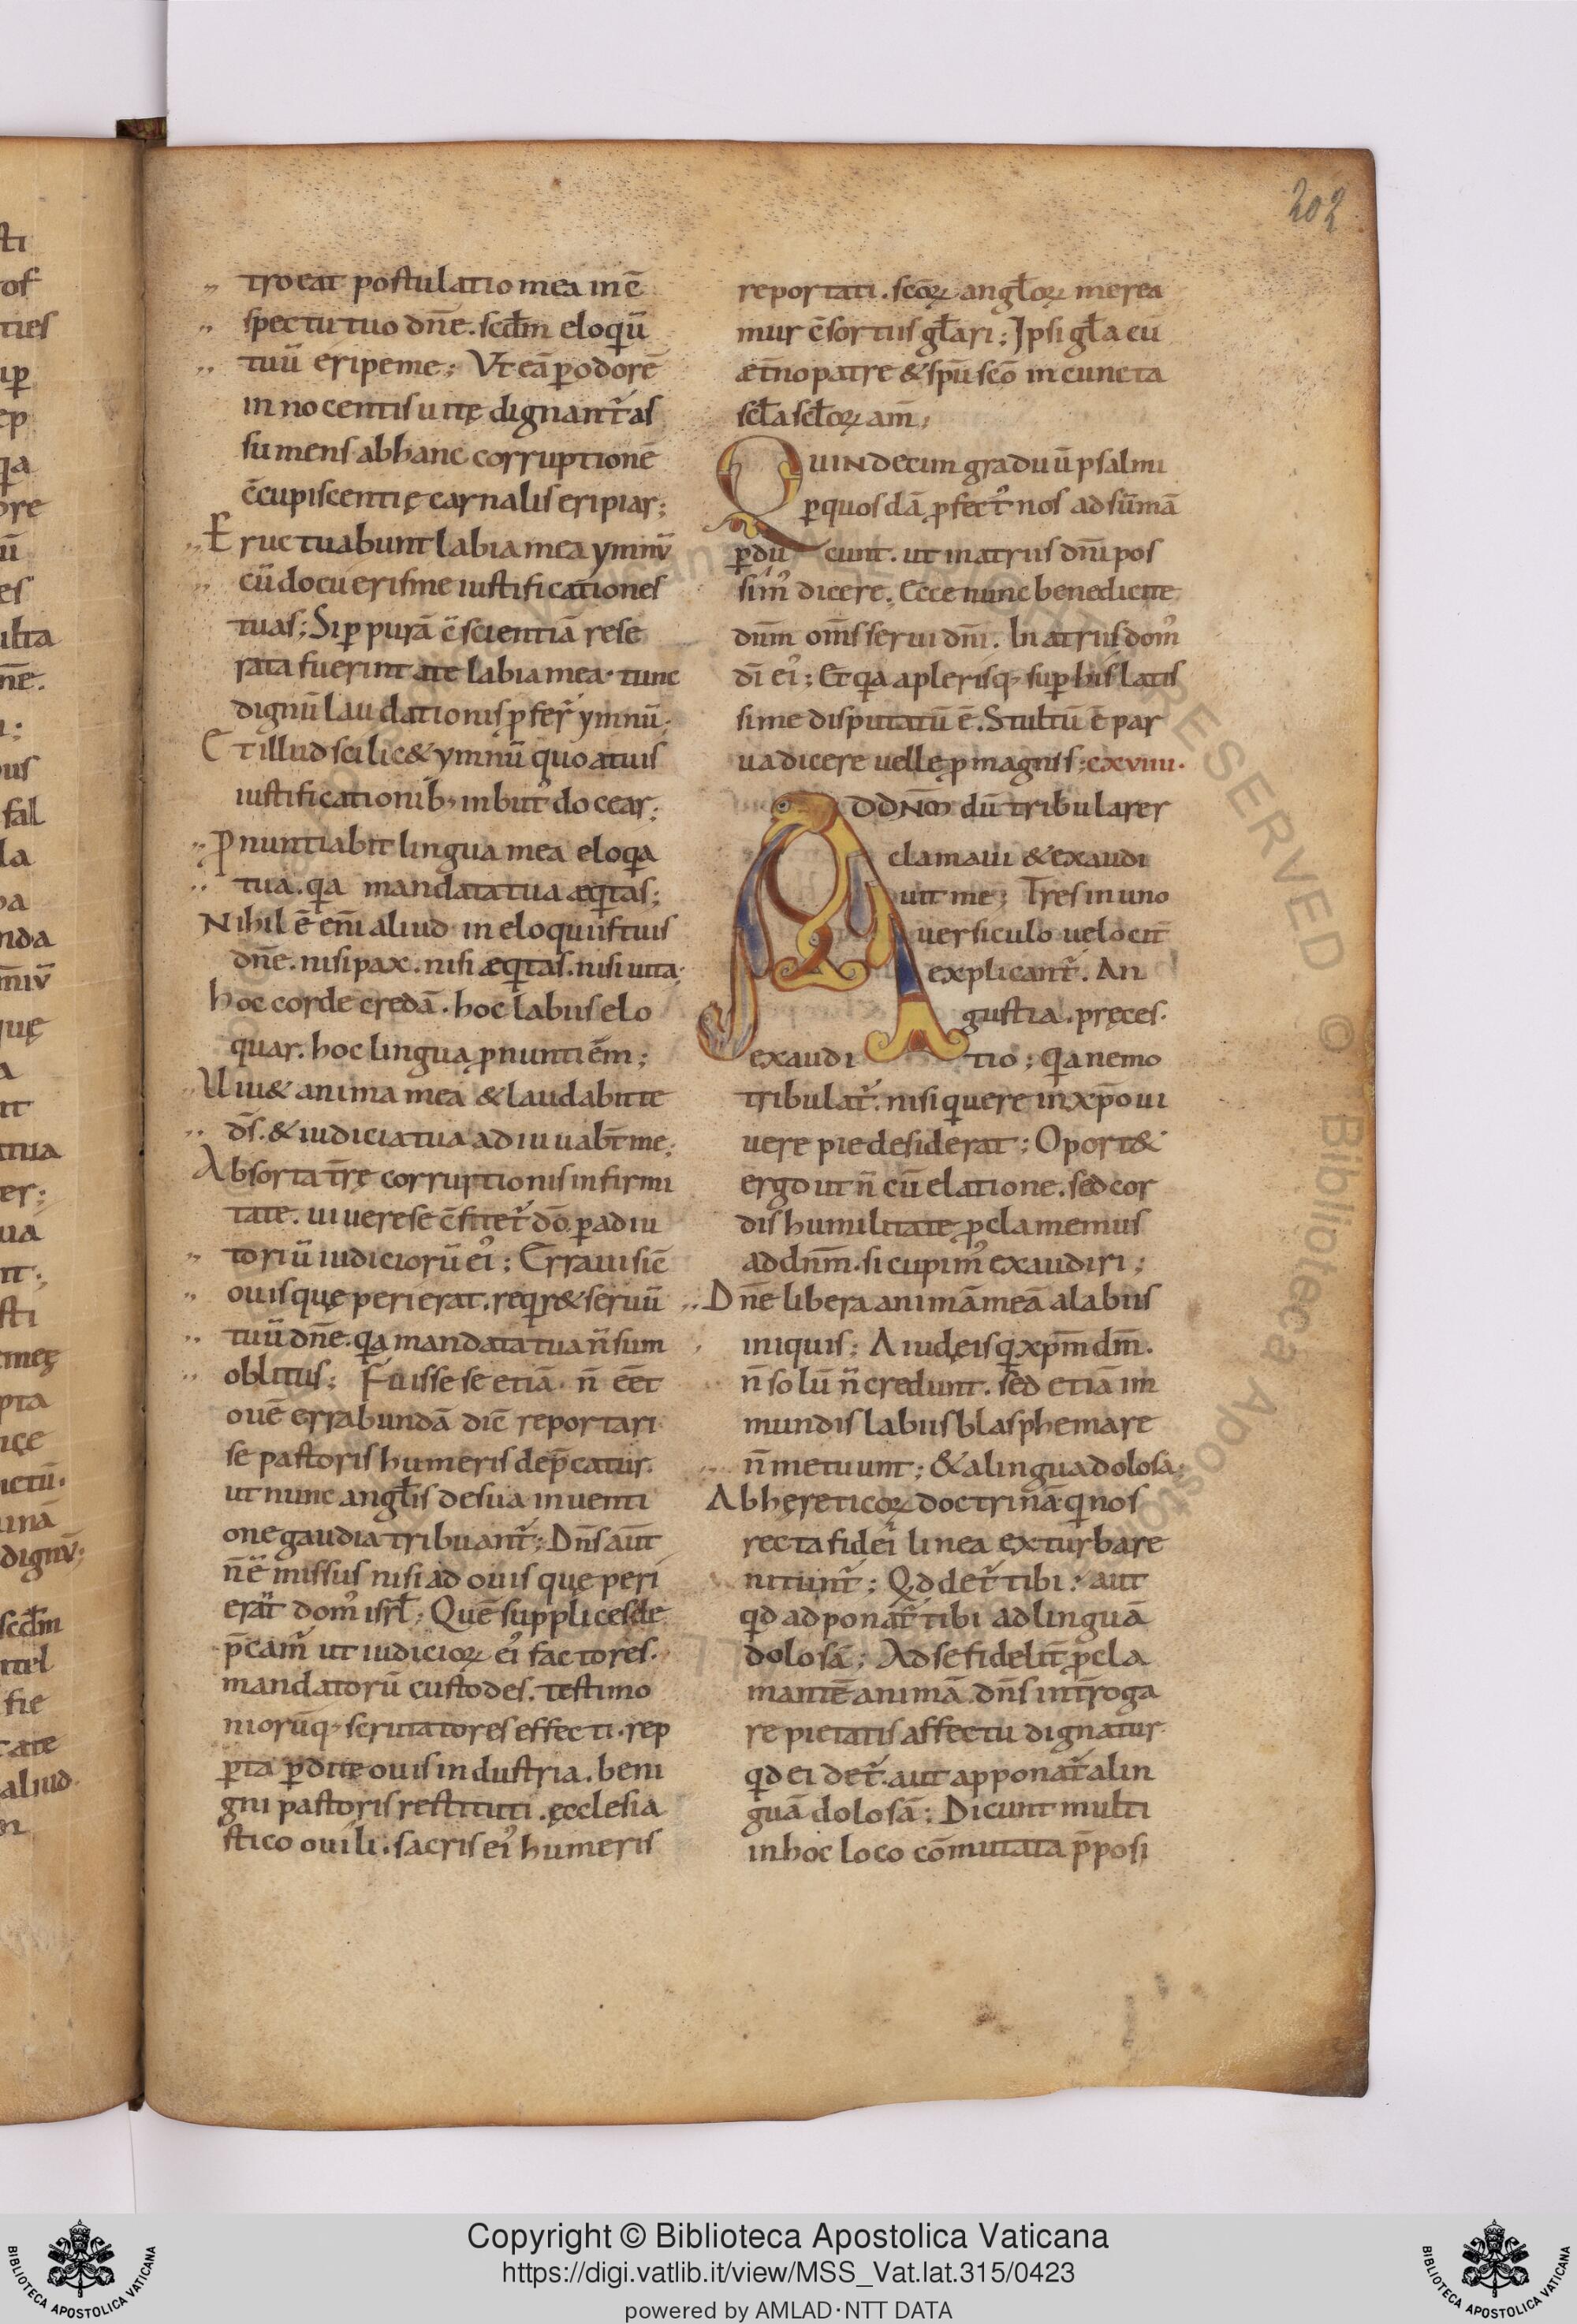 202
troeat postulatio mea in c̄
spectu tuo dn̄e. scd̄m eloqiū
tuū eripe me; Vt eā p̱ odorē
innocentis uitę dignant̄ as
sumens ab hanc corruptionē
c̄cupiscentię carnalis eripiar;
Eructuabunt labia mea ymnū
cū docueris me iustificationes
tuas; Si p̱ purā c̄scientiā rese
rata fuerint a te labia mea. tunc
dignū laudationis ꝓfer̄ ymnū.
Et illud scilic& ymnū quo a tuis
iustificationib; inbut᾿ docear;
Ꝓnuntiabit lingua mea eloqia
tua. qa mandata tua æqitas;
Nihil ē eni aliud in eloquiis tuis
dn̄e. nisi pax. nisi æqitas. nisi uita.
hoc corde credā. hoc labiis elo
quar. hoc lingua ꝓnuntiēm;
Uiu& anima mea & laudabit te
ds̄. & iudicia tua adiuuabt̄ me;
Absorta t̄rę corruptionis infirmi
tate. uiuere se c̄fitet̄ dō. p̱ adiu
toriū iudiciorū ei᾿; Erraui sic̄
ouis quę perierat. reqir& seruū
tuū dn̄e. qa mandata tua n̄ sum
oblitus; Fuisse se etiā n̄ eēt
ouē errabundā dic̄ reportari
se pastoris humeris dep̄catur.
ut nunc angl̄is de sua inuenti
one gaudia tribuant̄; Dn̄s aūt
n̄ ē missus nisi ad ouis quę peri
erāt dom᾿ isrl̄; Quē supplices de
p̄cam᾿ ut iudicioꝝ ei᾿ factores.
mandatorū custodes. testimo
niorūq; scrutatores effecti. rep
p̱ta p̱ditę ouis industria. beni
gni pastoris restituti. ęcclesia
stico ouili. sacris ei᾿ humeris
reportati. scōꝝ angl̄oꝝ merea
mur c̄sortiis gl̄ari; Ipsi gl̄a cū
æt̄no patre & spū scō in cuncta
scl̄a scl̄oꝝ am̄;
Quindecim graduū psalmi
p̱ quosdā ꝓfect᾿ nos ad sūmā
p̱ducunt. ut in atriis dn̄i pos
sim᾿ dicere. Ecce nunc benedicite
dn̄m om̄s serui dn̄i. In atriis dom᾿
dī ei᾿; Et qa a plerisq; sup̱ his latis
sime disputatū ē. Stultū ē par
ua dicere uelle ꝓ magnis; cxviiii.
Ad dn̄m dū tribularer
clamaui & exaudi
uit me; Tres in uno
uersiculo uelocit̄
explicant̄. An
gustia. pręces.
exauditio; Qia nemo
tribulat̄. nisi qi uere in xp̄o ui
uere pie desiderat; Oport&
ergo ut n̄ cū elatione. sed cor
dis humilitate ꝓclamemus
ad dn̄m. si cupim᾿ exaudiri;
Dn̄e libera animā meā a labiis
iniquis; A iudeis qi xp̄m dm̄.
n̄ solū n̄ credunt. sed etiā im
mundis labiis blasphemare
n̄ metuunt; & a lingua dolosa;
Ab hęreticoꝝ doctrina. qi nos
recta fidei linea exturbare
nitunt̄; Qd det̄ tibi. aut
qd adponat̄ tibi ad linguā
dolosā; Ad se fidelit̄ ꝓcla
mantē animā. dn̄s int̄roga
re pietatis affectu dignatur.
qd ei det̄. aut apponat̄ a lin
guā dolosā; Dicunt multi
in hoc loco cōmutata p̄posi
Copyright © Biblioteca Apostolica Vaticana
https://digi.vatlib.it/view/MSS_Vat.lat.315/0423
powered by AMLAD·NTT DATA